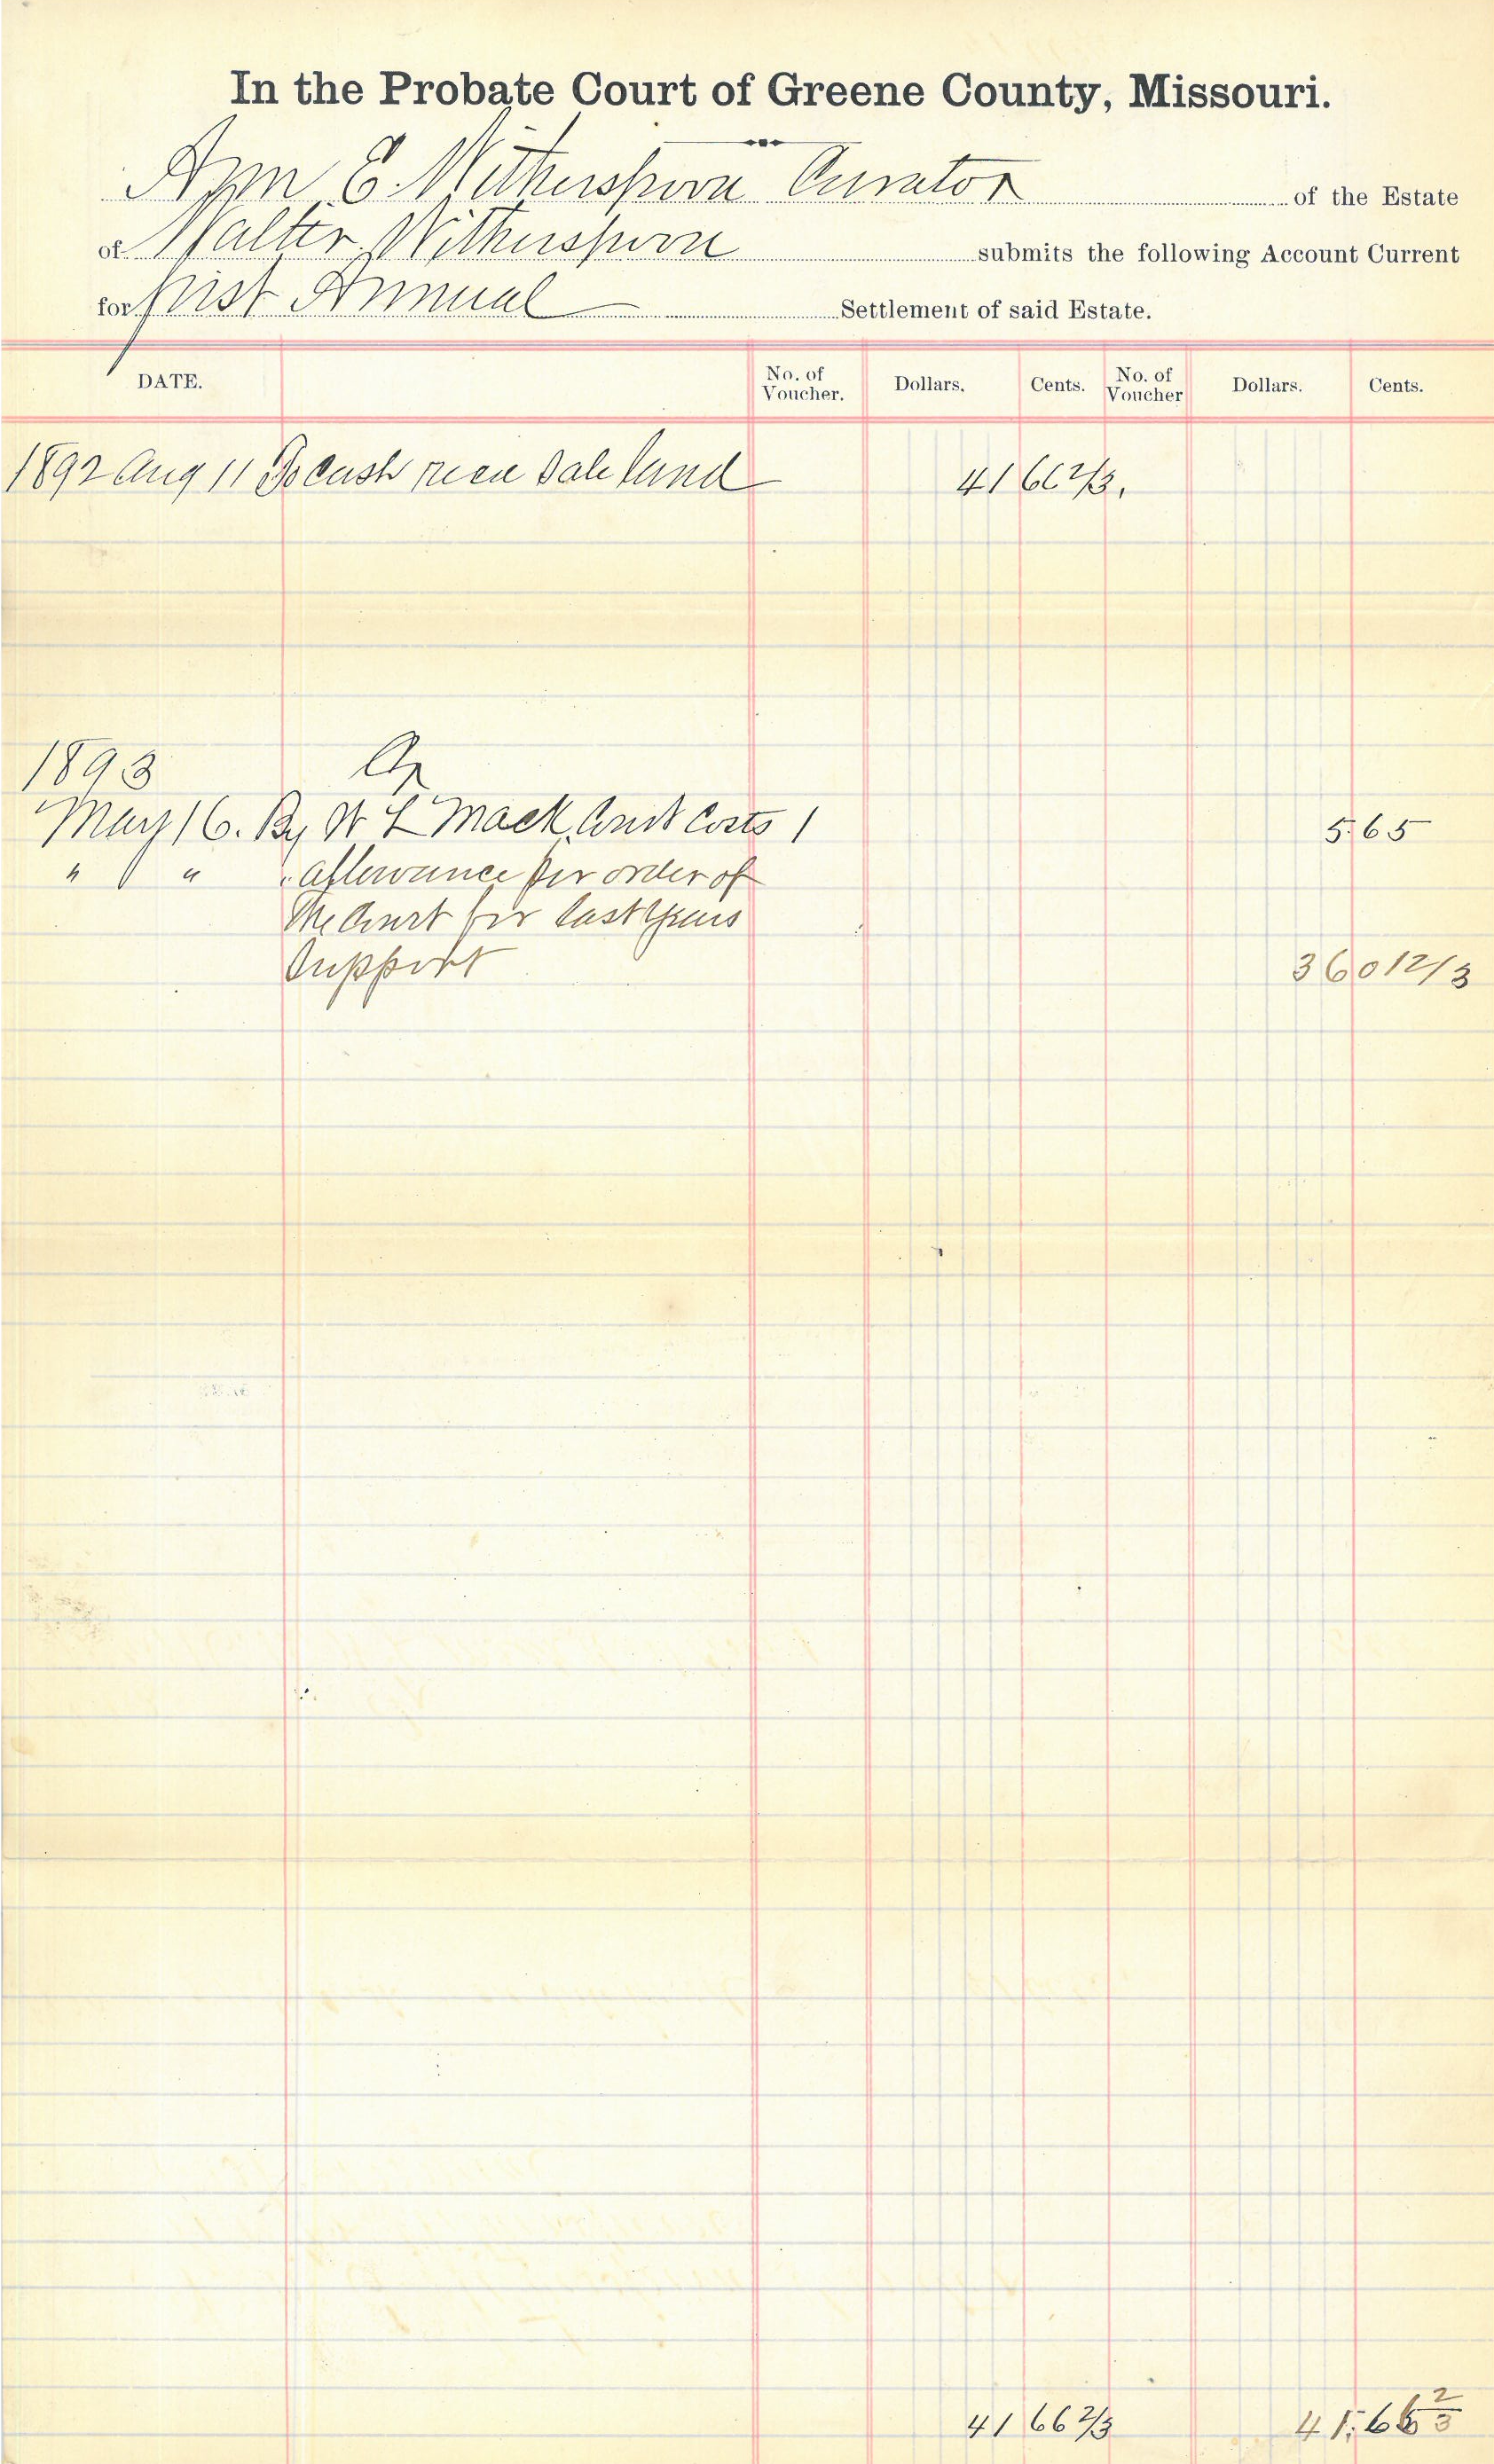 In the Probate Court of Greene County, Missouri.
Ann E. Witherspoon Curator of the Estate
of Walter Witherspoon submits the following Account Current
for first Annual Settlement of said Estate.
DATE. No. of Voucher. Dollars. Cents. No. of Voucher Dollars. Cents.
1892 Aug 11 To cash recd Sale land 41 66 2/3.
1893 Cr
May 16. By W L Mack Court Costs 1 5.65
" " " allowance per order of
the Court for last years
Support 36 01 2/3
41 66 2/3 41.66 2/3